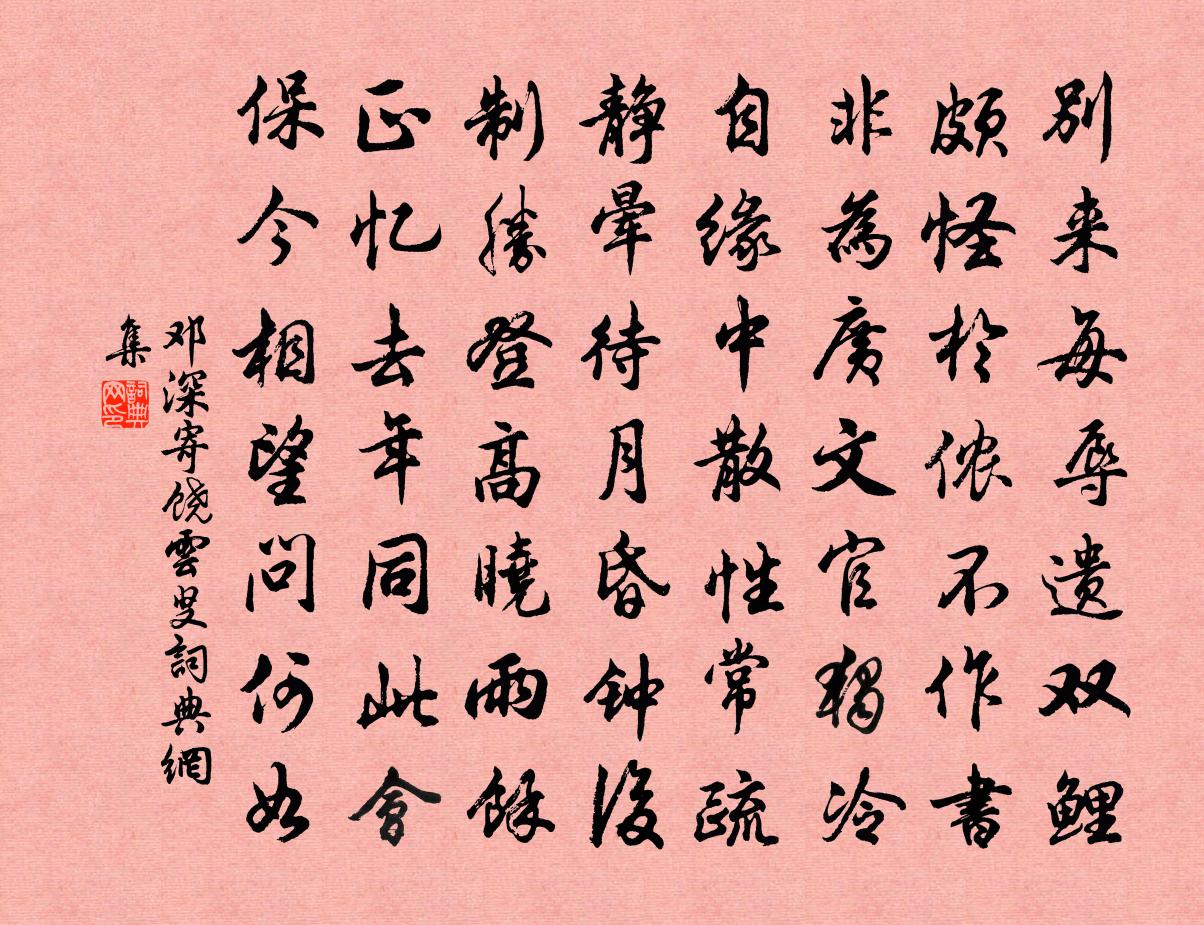 别来每辱遗双鲤
颇怪於侬不作书
非為广文官独冷
自缘中散性常疏
静晕待月昏钟後
制勝登高曉雨餘
正忆去年同此會
保今相望问何如
邓深寄饶雲叟詞典網
集
詞典网印